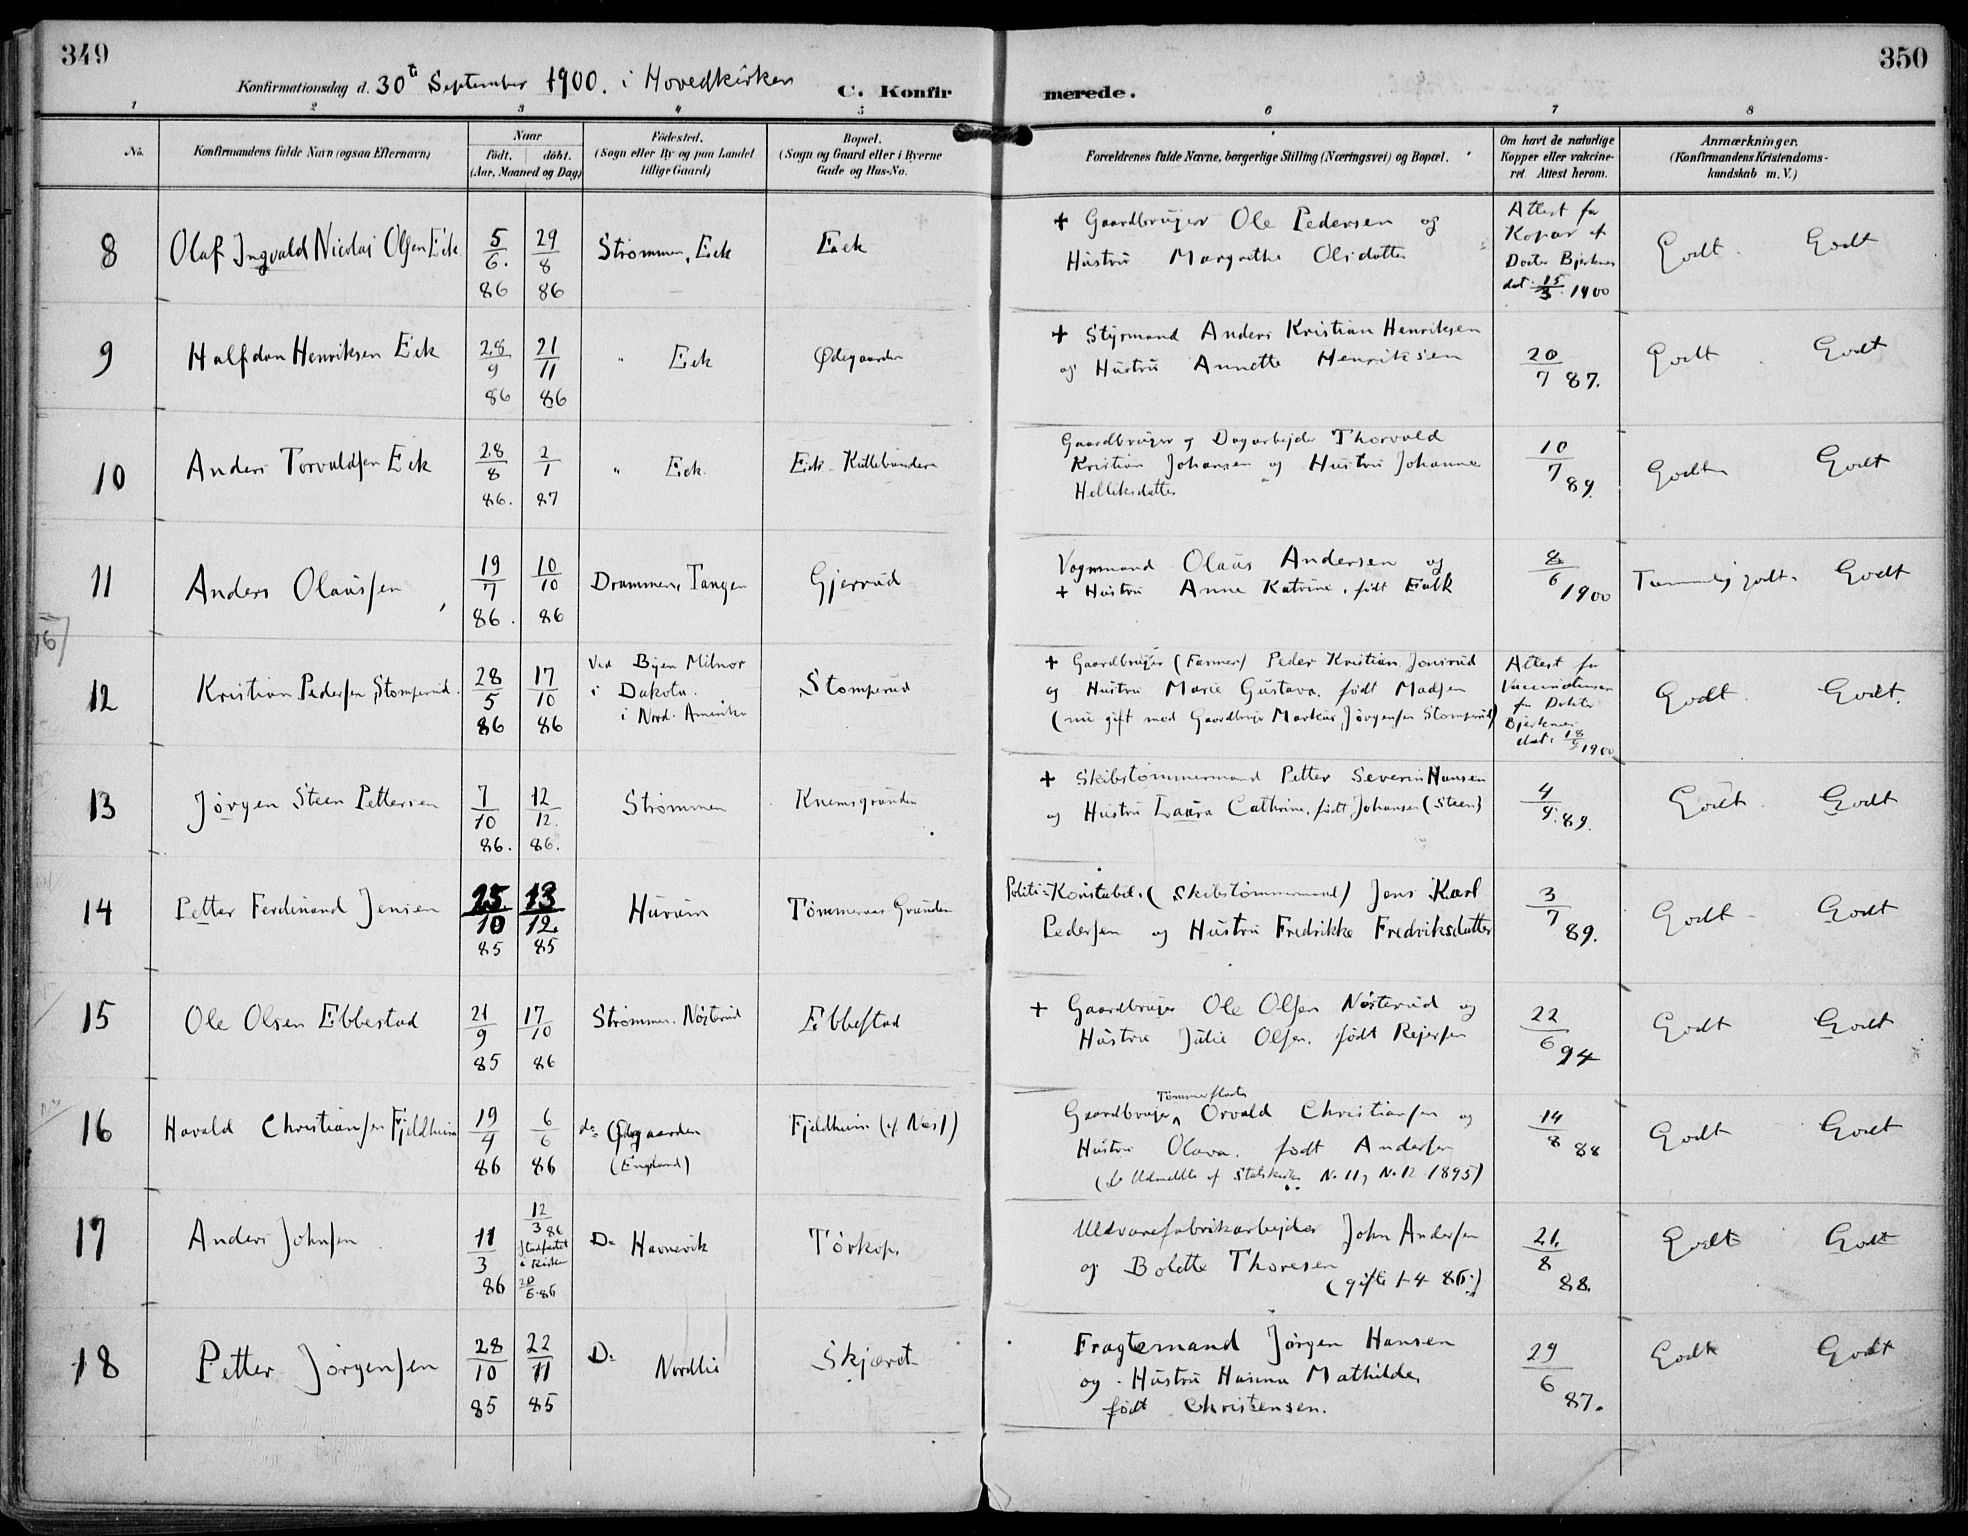 349
350
Konfirmationsdag d. 30te September 1900. i Hovedkirken
C. Konfir
merede.
1 2 3 4 5 6 7 8
No.
Konfirmandens fulde Navn (ogsaa Efternavn)
Naar
födt. döbt.
(Aar, Maaned og Dag)
Födested.
(Sogn eller By og paa Landet
tillige Gaard)
Bopæl.
(Sogn og Gaard eller i Byerne
Gade og Hus-No.
Forældrenes fulde Navne, borgerlige Stilling (Næringsvei) og Bopæl.
Om havt de naturlige
Kopper eller vakcine-
ret. Attest herom.
Anmærkninger.
(Konfirmandens Kristendoms-
kundskab m. V.)
8 Olaf Ingvald Nicolai Olsen Eek 5/6. 86 29/8 86 Strömmen, Eek Eek
+ Gaardbruger Ole Pedersen og
Hustru Margrethe Olsdatter
Attest for
Kopar af
Doctor Bjerknes
dat. 15/3 1900
Godt. Godt
9 Halfdan Henriksen Eek 28/9 86 21/11 86 " Eek Ødegaarden
+ Styrmand Anders Kristian Henriksen
og Hustru Annette Henriksen
20/7 87.
Godt. Godt
10 Anders Torvaldsen Eek 28/8 86. 2/1 87 " Eek Eek
Gaardbruger og Dagarbejder Thorvald
Kristian Johansen og Hustru Johanne
Helliksdatter
10/7 89.
Godt Godt
11 Anders Olaussen 19/7 86. 10/10 86 Drammen, Tangen Gjerrud
Vognmand Olaus Andersen og
+ Hustru Anne Katrine, født Falk
8/6 1900
Temmelig godt. Godt
12 Kristian Pedersen Stomperud. 28/5 86 17/10 86
Ved Byen Milnor
i Dakota.
i Nord-Amerika
Stomperud
+ Gaardbruger (Farmer) Peder Kristian Jonsrud
og Hustru Marie Gustava, født Madsen
(nu gift med Gaardbruger Markus Jørgensen Stomperud)
Attest for
Vaccinationen
fra Doktor
Bjerknes
dat. 18/9 1900
Godt. Godt.
13 Jørgen Steen Pettersen 7/10 86. 12/12. 86. Strömmen Knemsgrunden
+ Skibstömmermand Petter Severin Hansen
og Hustru Laura Cathrine, født Johansen (Steen)
4/9. 89.
Godt. Godt
14 Petter Ferdinand Jensen 25/10 85 13/12. 85 Hurum Tömmeraas Grunden
Politi-Konstabel. (Skibstömmermand) Jens Karl
Pedersen og Hustru Fredrikke Fredriksdatter
3/7 89.
Godt Godt
15 Ole Olsen Ebbestad 21/9 85 17/10 86 Strömmen. Nösterud Ebbestad
+ Gaardbruger Ole Olsen Nösterud og
Hustru Julie Olsen, født Rejersen
22/6 94
Godt Godt
16 Harald Christiansen Fjeldheim 19/4 86 6/6 86 do: Ødegaarden
(Engelund)
Fjeldheim (af Næs)
Tömmerflöder
Gaardbruger, Orvald Christiansen og
Hustru Olava. født Andersen
(de Udmeldte af Statskirken No. 11, No 12 1895)
14/8 88
Godt Godt
17 Anders Johnsen 11/3 86
12/3 86
Stadfæstet
i Kirken
20/6-86
Do Havnevik Törkop.
Uldvarefabrikarbejder John Andersen
og Bolette Thoresen
(gifte 1-4 86.)
21./8 88.
Godt Godt
18 Petter Jörgensen 28/10 85 22/11 85 Do Nordlie Skjæret
Fragtemand Jörgen Hansen
og Hustru Hanna Mathilde,
født Christensen.
29/6 87.
Godt Godt